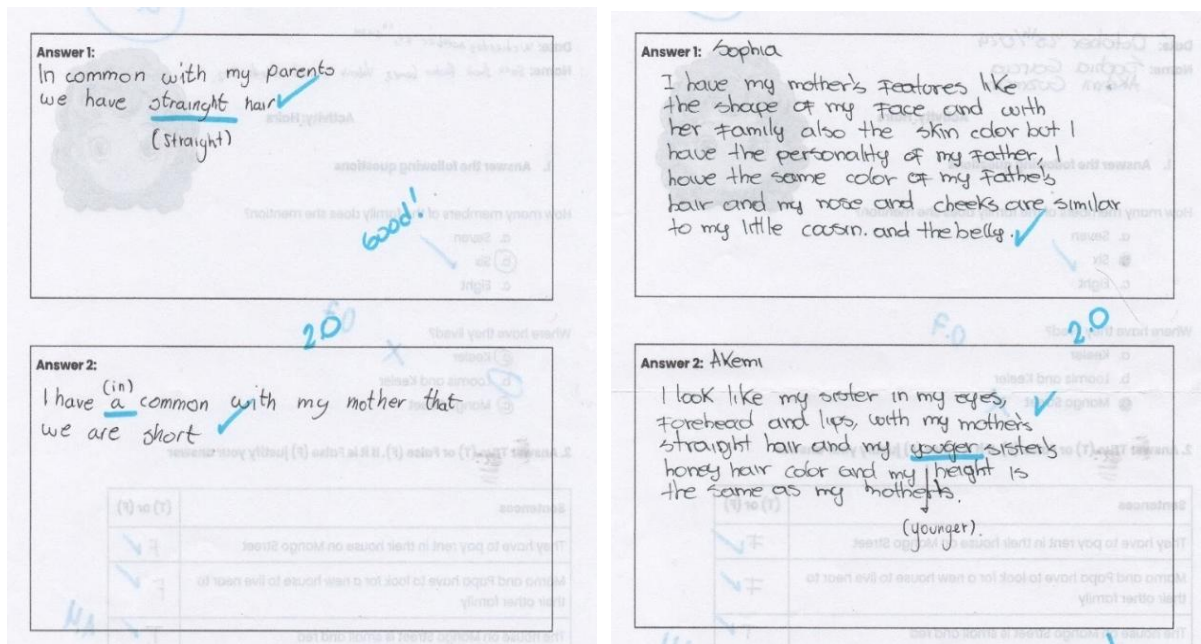 Answer 1:
In common with my parents
we have strainght hair
(straight)
Good!
2.0
Answer 2:
(in)
I have a common with my mother that
we are short
Answer 1: Sophia
I have my mother's features like
the shape of my face and with
her family also the skin color but I
have the personality of my father. I
have the same color of my father's
hair and my nose and cheeks are similar
to my little cousin. and the belly.
2.0
Answer 2: Akemi
I look like my sister in my eyes,
forehead and lips, with my mother's
straight hair and my youger sister's
honey hair color and my height is
the same as my mother's.
(younger).